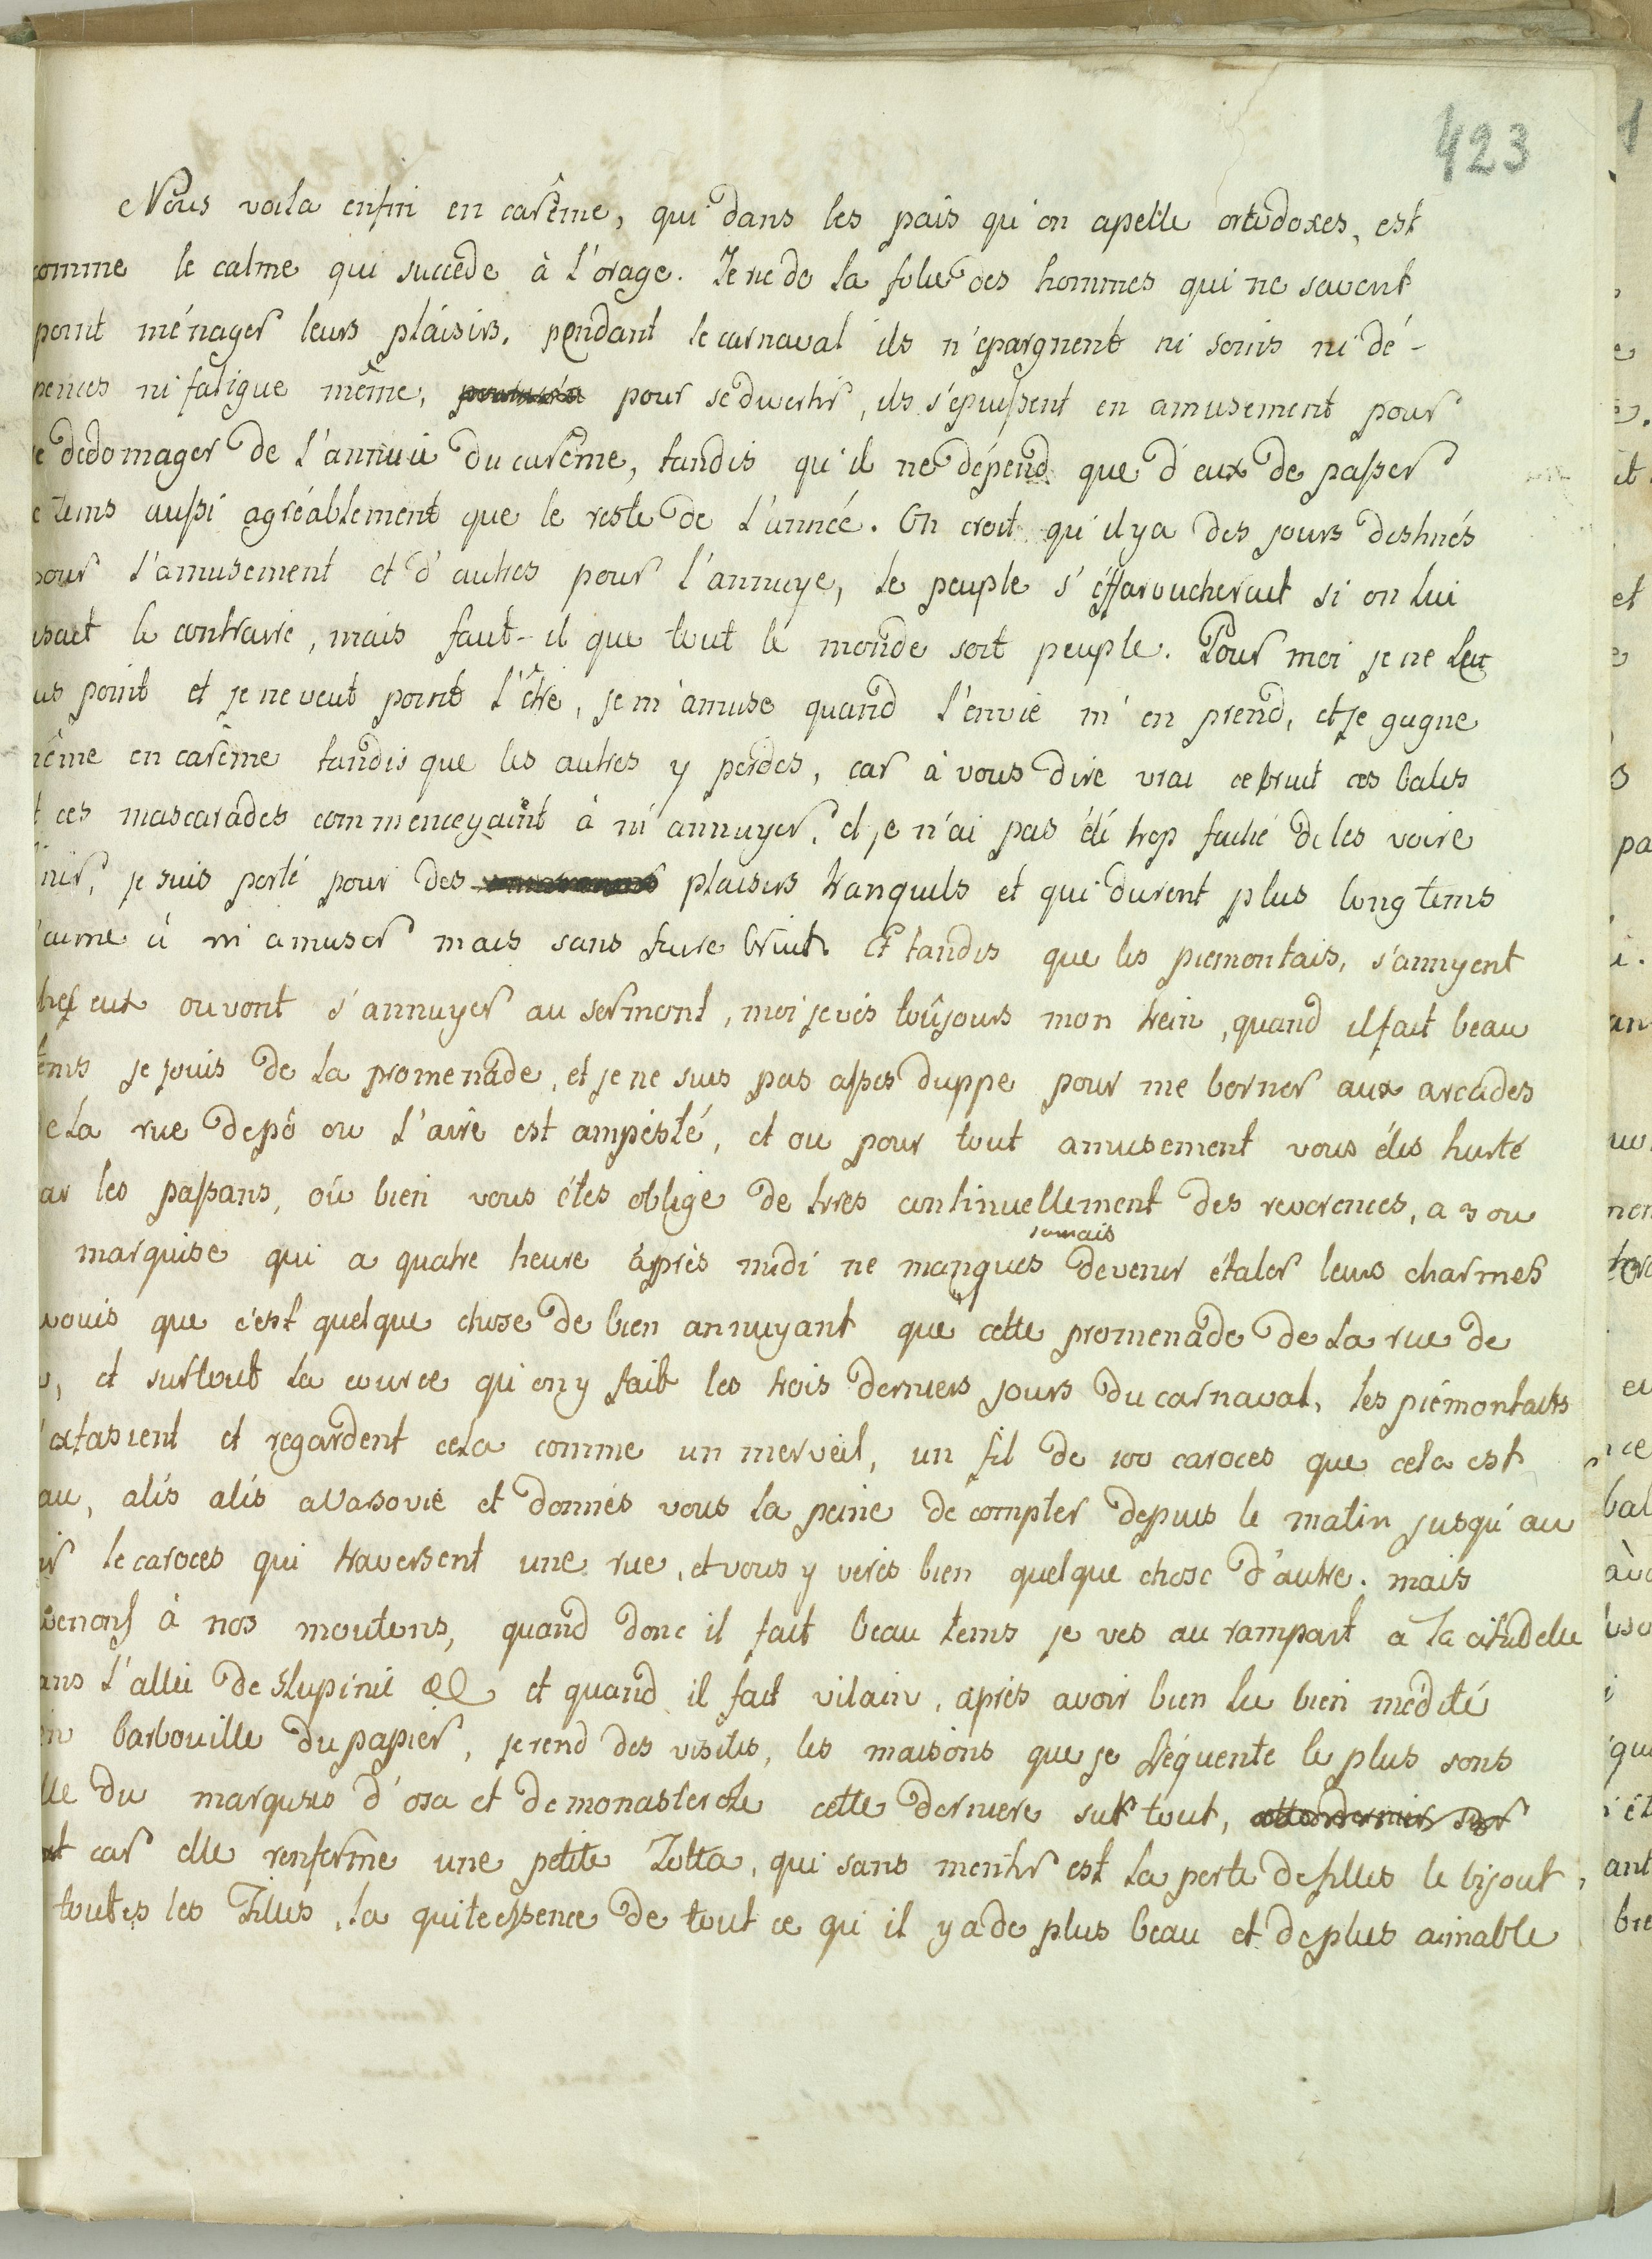 423
Nous voila enfin en carême, qui dans les païs qu'on apelle ortodoxes, est
comme le calme qui succede à l'orage. Je rie de la folie des hommes qui ne savent
point ménager leurs plaisirs, pendant le carnaval ils n'epargnent ni soins ni dé-
pences ni fatigue même, pour se divertir, ils s'epuisent en amusement pour
e dedomager de l'annuie du carême, tandis qu'il ne dépend que d'eux de passer
e tems aussi agréablement que le reste de l'année. On croit qu'il y a des jours destinés
pour l'amusement et d'autres pour l'annuye, le peuple s'éffaroucherait si on lui
isait le contraire, mais faut-il que tout le monde soit peuple. Pour moi je ne le
us point et je ne veut point l'être, je m'amuse quand l'envie m'en prend, et je gagne
même en carême tandis que les autres y perdes, car à vous dire vrai ce bruit ces bales
t ces mascarades commenceyaint à m'annuyer, et je n'ai pas été trop faché de les voire
inir, je suis porté pour des plaisirs tranquils et qui durent plus long tems
'aime à m'amuser mais sans faire bruit. Et tandis que les piemontais, s'annuyent
chés eux ou vont s'annuyer au sermont, moi je vés toûjours mon trein, quand il fait beau
tems je jouis de la promenade, et je ne suis pas assés duppe pour me borner aux arcades
e la rue depô ou l'aire est ampésté, et ou pour tout amusement vous étes hurté
ar les passans, où bien vous étes obligé de tires continuellement des reverences, a 3 ou
marquise qui a quatre heure après midi ne manques jamais de venir étaler leurs charmes
vouis que c'est quelque chose de bien annuyant que cette promenade de la rue de
o, et surtout la cource qu'on y fait les trois derniers jours du carnaval, les piémontaits
'extasient et regardent cela comme un merveil, un fil de 100 caroces que cela est
au, alés alés aVasovie et donnés vous la peine de compter depuis le matin jusqu'au
ir le caroces qui traversent une rue, et vous y verés bien quelque chose d'autre. mais
venons à nos moutons, quand donc il fait beau tems je ves au rampart a la citadelle
ans l'allée de Stupinie et quand il fait vilain, aprés avoir bien lu bien médité
en barbouille du papier, je rend des visites, les maisons que je fréquente le plus sons
lle du marquise d'osa et de monasterole cette derniere sur tout,
car elle renferme une petite Zotta, qui sans mentir est la perle de filles le bijout,
toutes les Filles, la quiteessence de tout ce qu'il y a de plus beau et de plus aimable